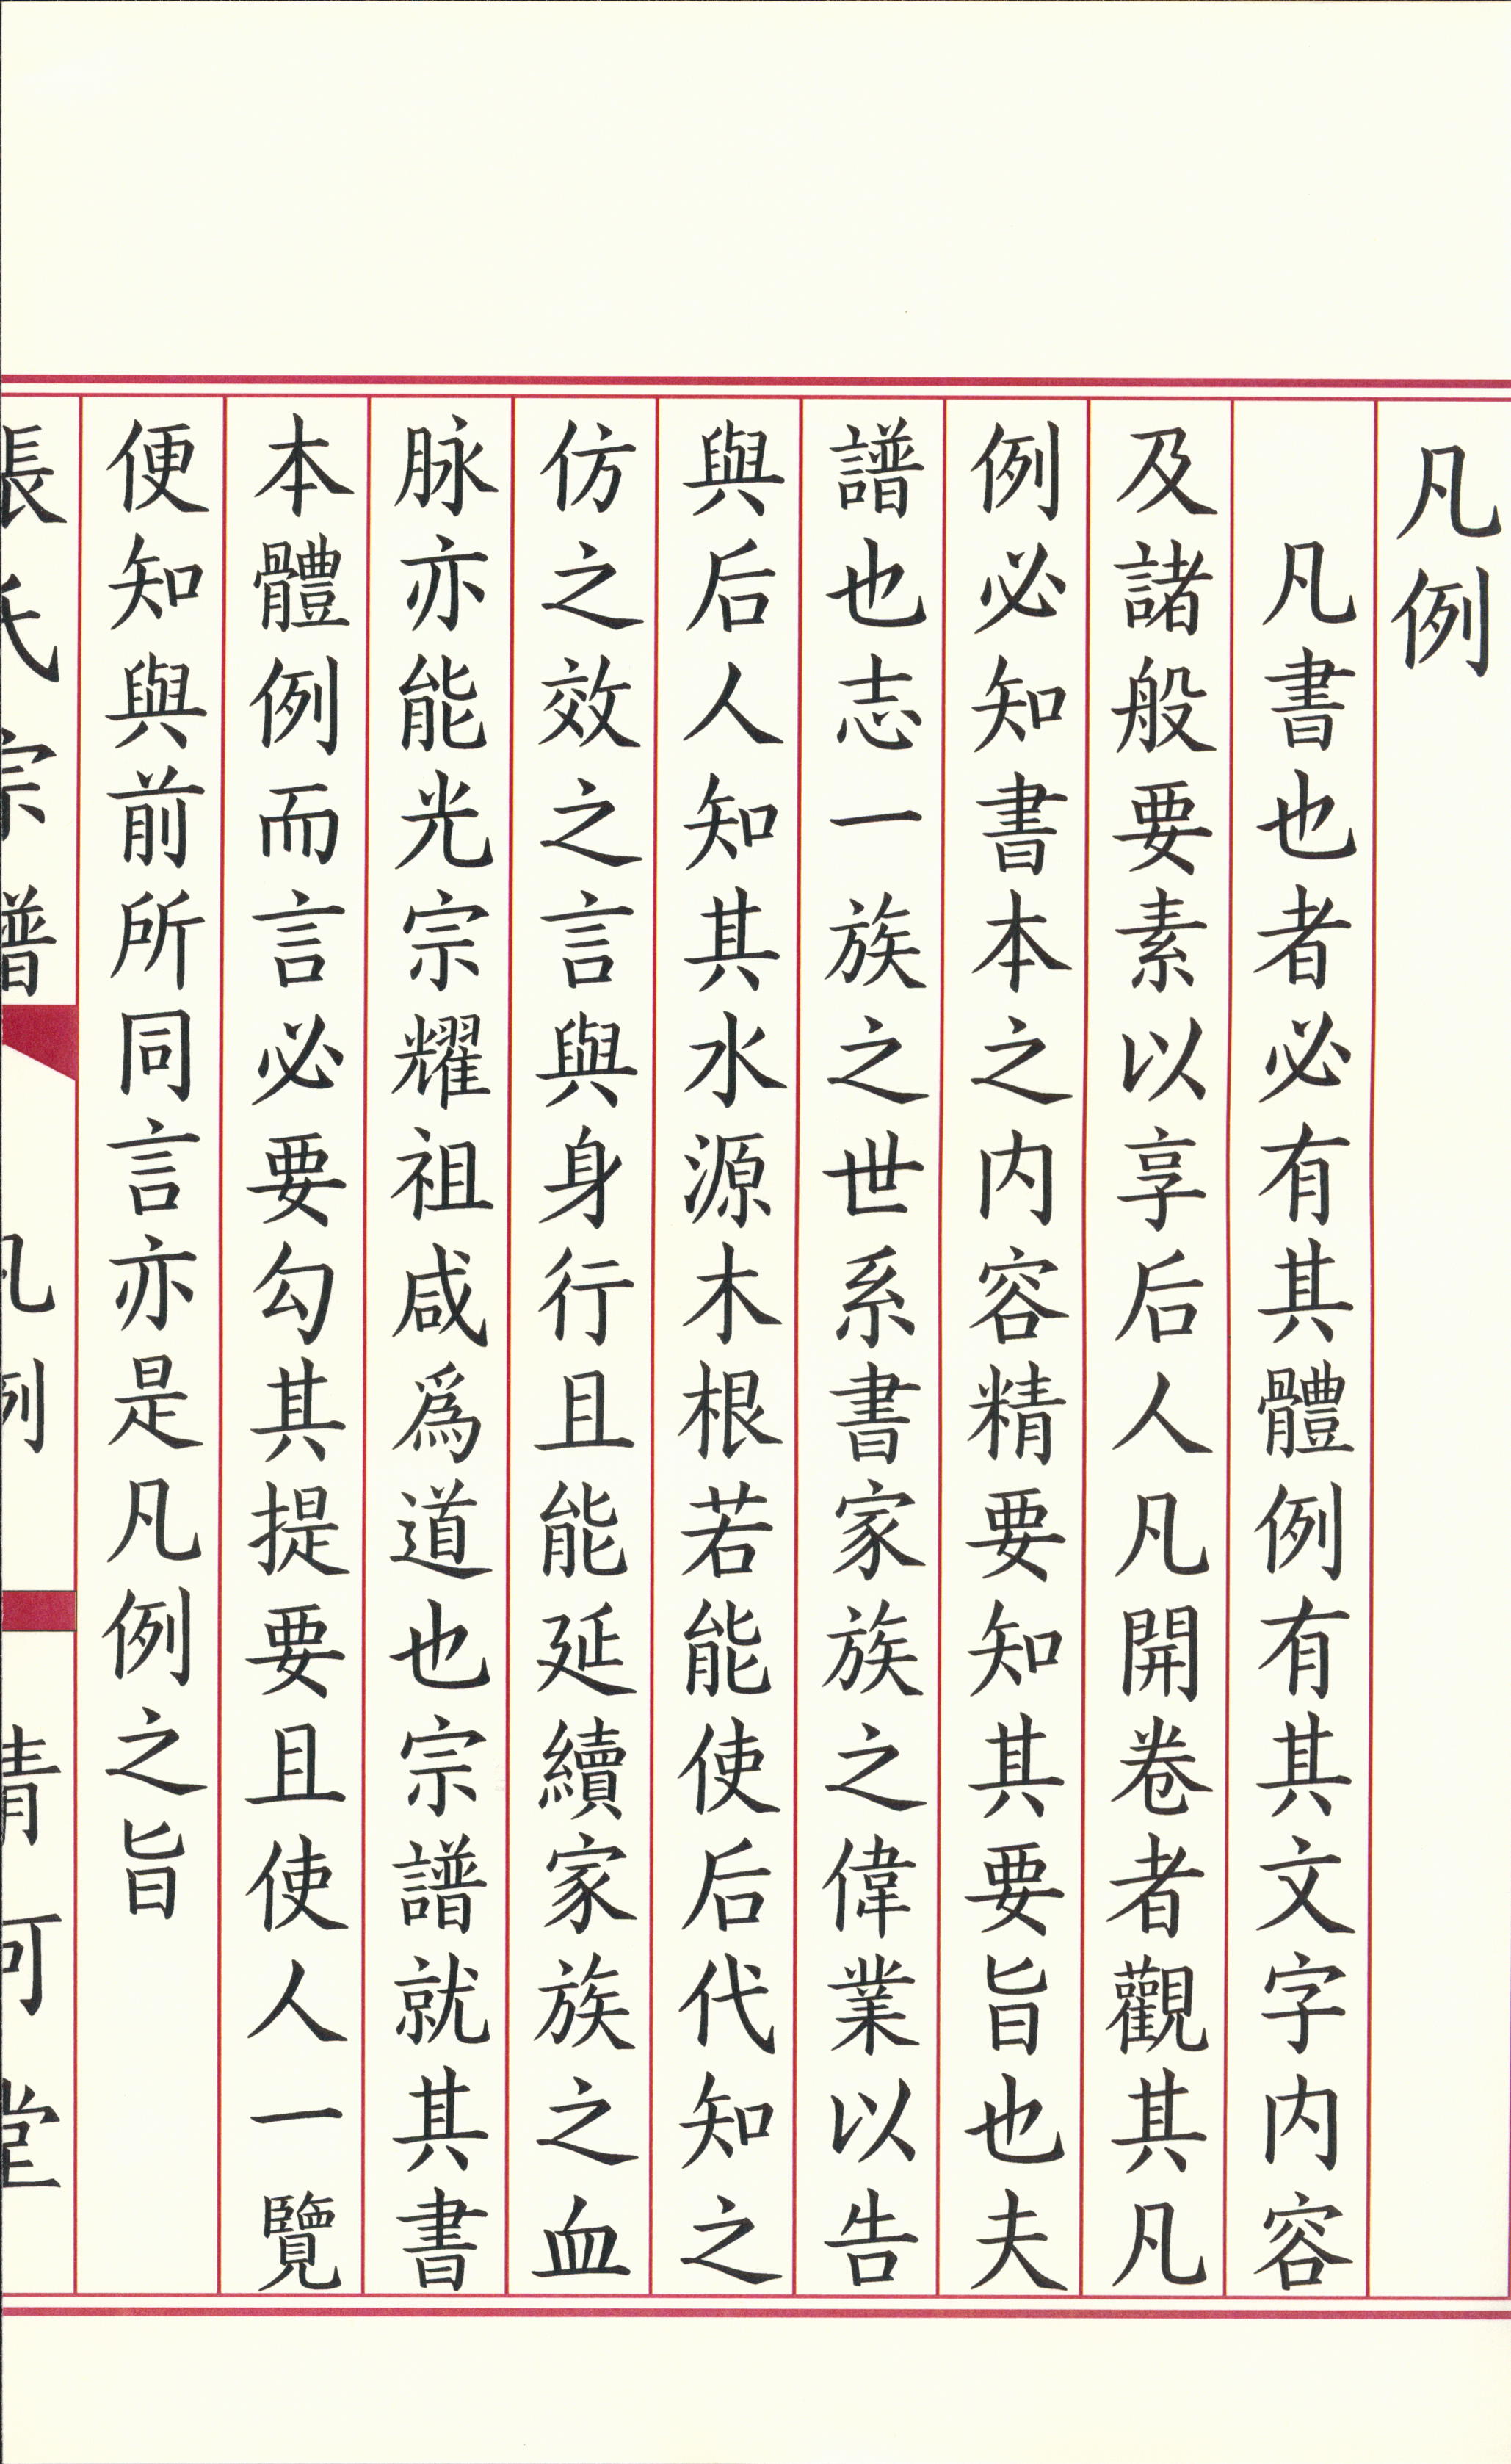 凡例
凡書也者必有其體例有其文字内容
及諸般要素以享后人凡開卷者觀其凡
例必知書本之内容精要知其要旨也夫
譜也志一族之世系書家族之偉業以告
與后人知其水源木根若能使后代知之
仿之效之言與身行且能延續家族之血
脉亦能光宗耀祖咸爲道也宗譜就其書
本體例而言必要勾其提要且使人一覽
便知與前所同言亦是凡例之旨
張氏宗譜 凡例 清河堂